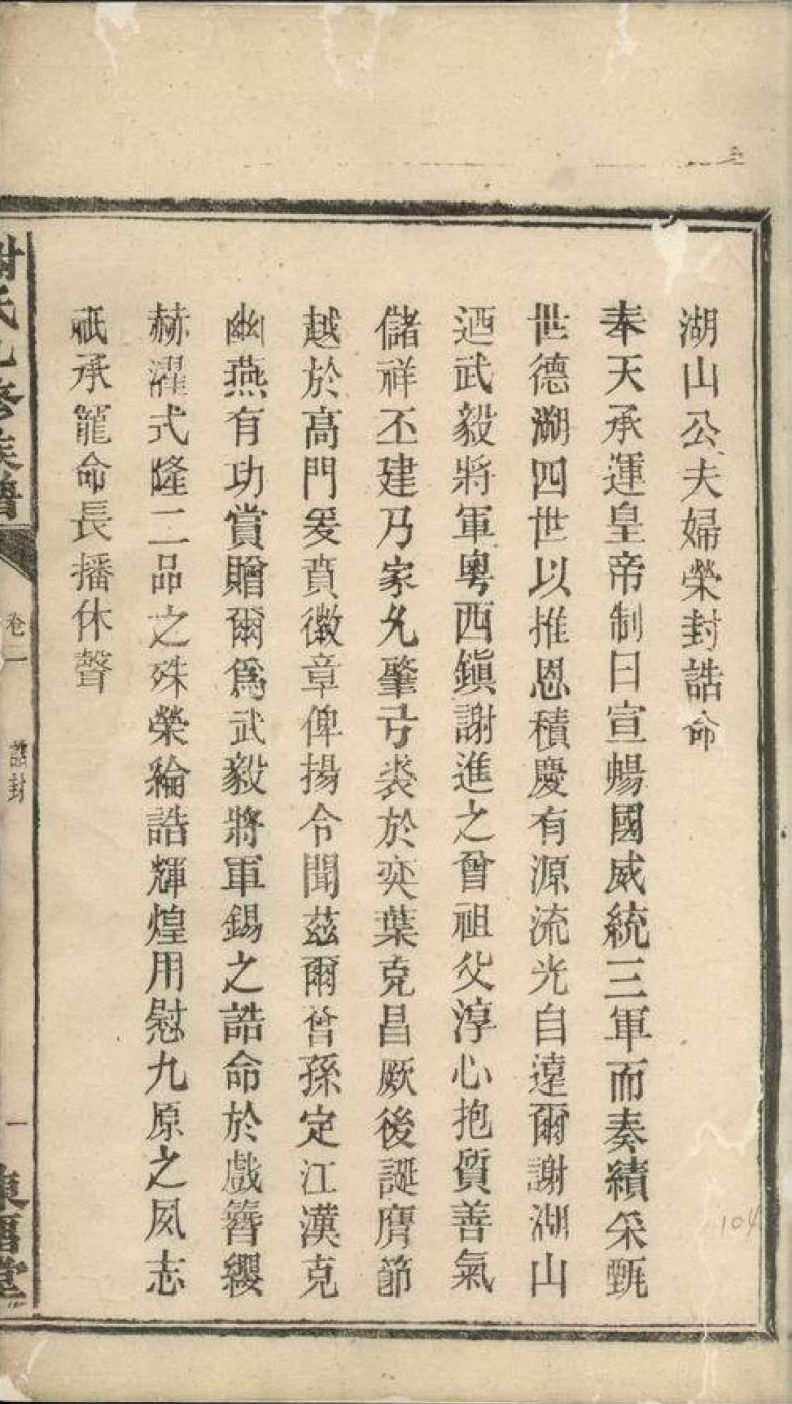 湖山公夫婦榮封誥命
奉天承運皇帝制曰宣暢國威統三軍而奏績采甄
世德溯四世以推恩積慶有源流光自遠爾謝湖山
迺武毅將軍粵西鎮謝進之曾祖父淳心抱質善氣
儲祥丕建乃家允肇弓裘於奕葉克昌厥後誕膺節
越於高門爰賁徽章俾揚令聞茲爾曾孫定江漢克
幽燕有功賞贈爾爲武毅將軍錫之誥命於戲簪纓
赫濯式隆二品之殊榮綸誥輝煌用慰九原之夙志
祇承寵命長播休聲
謝氏九修族譜
卷二
誥封
一
東山堂
104